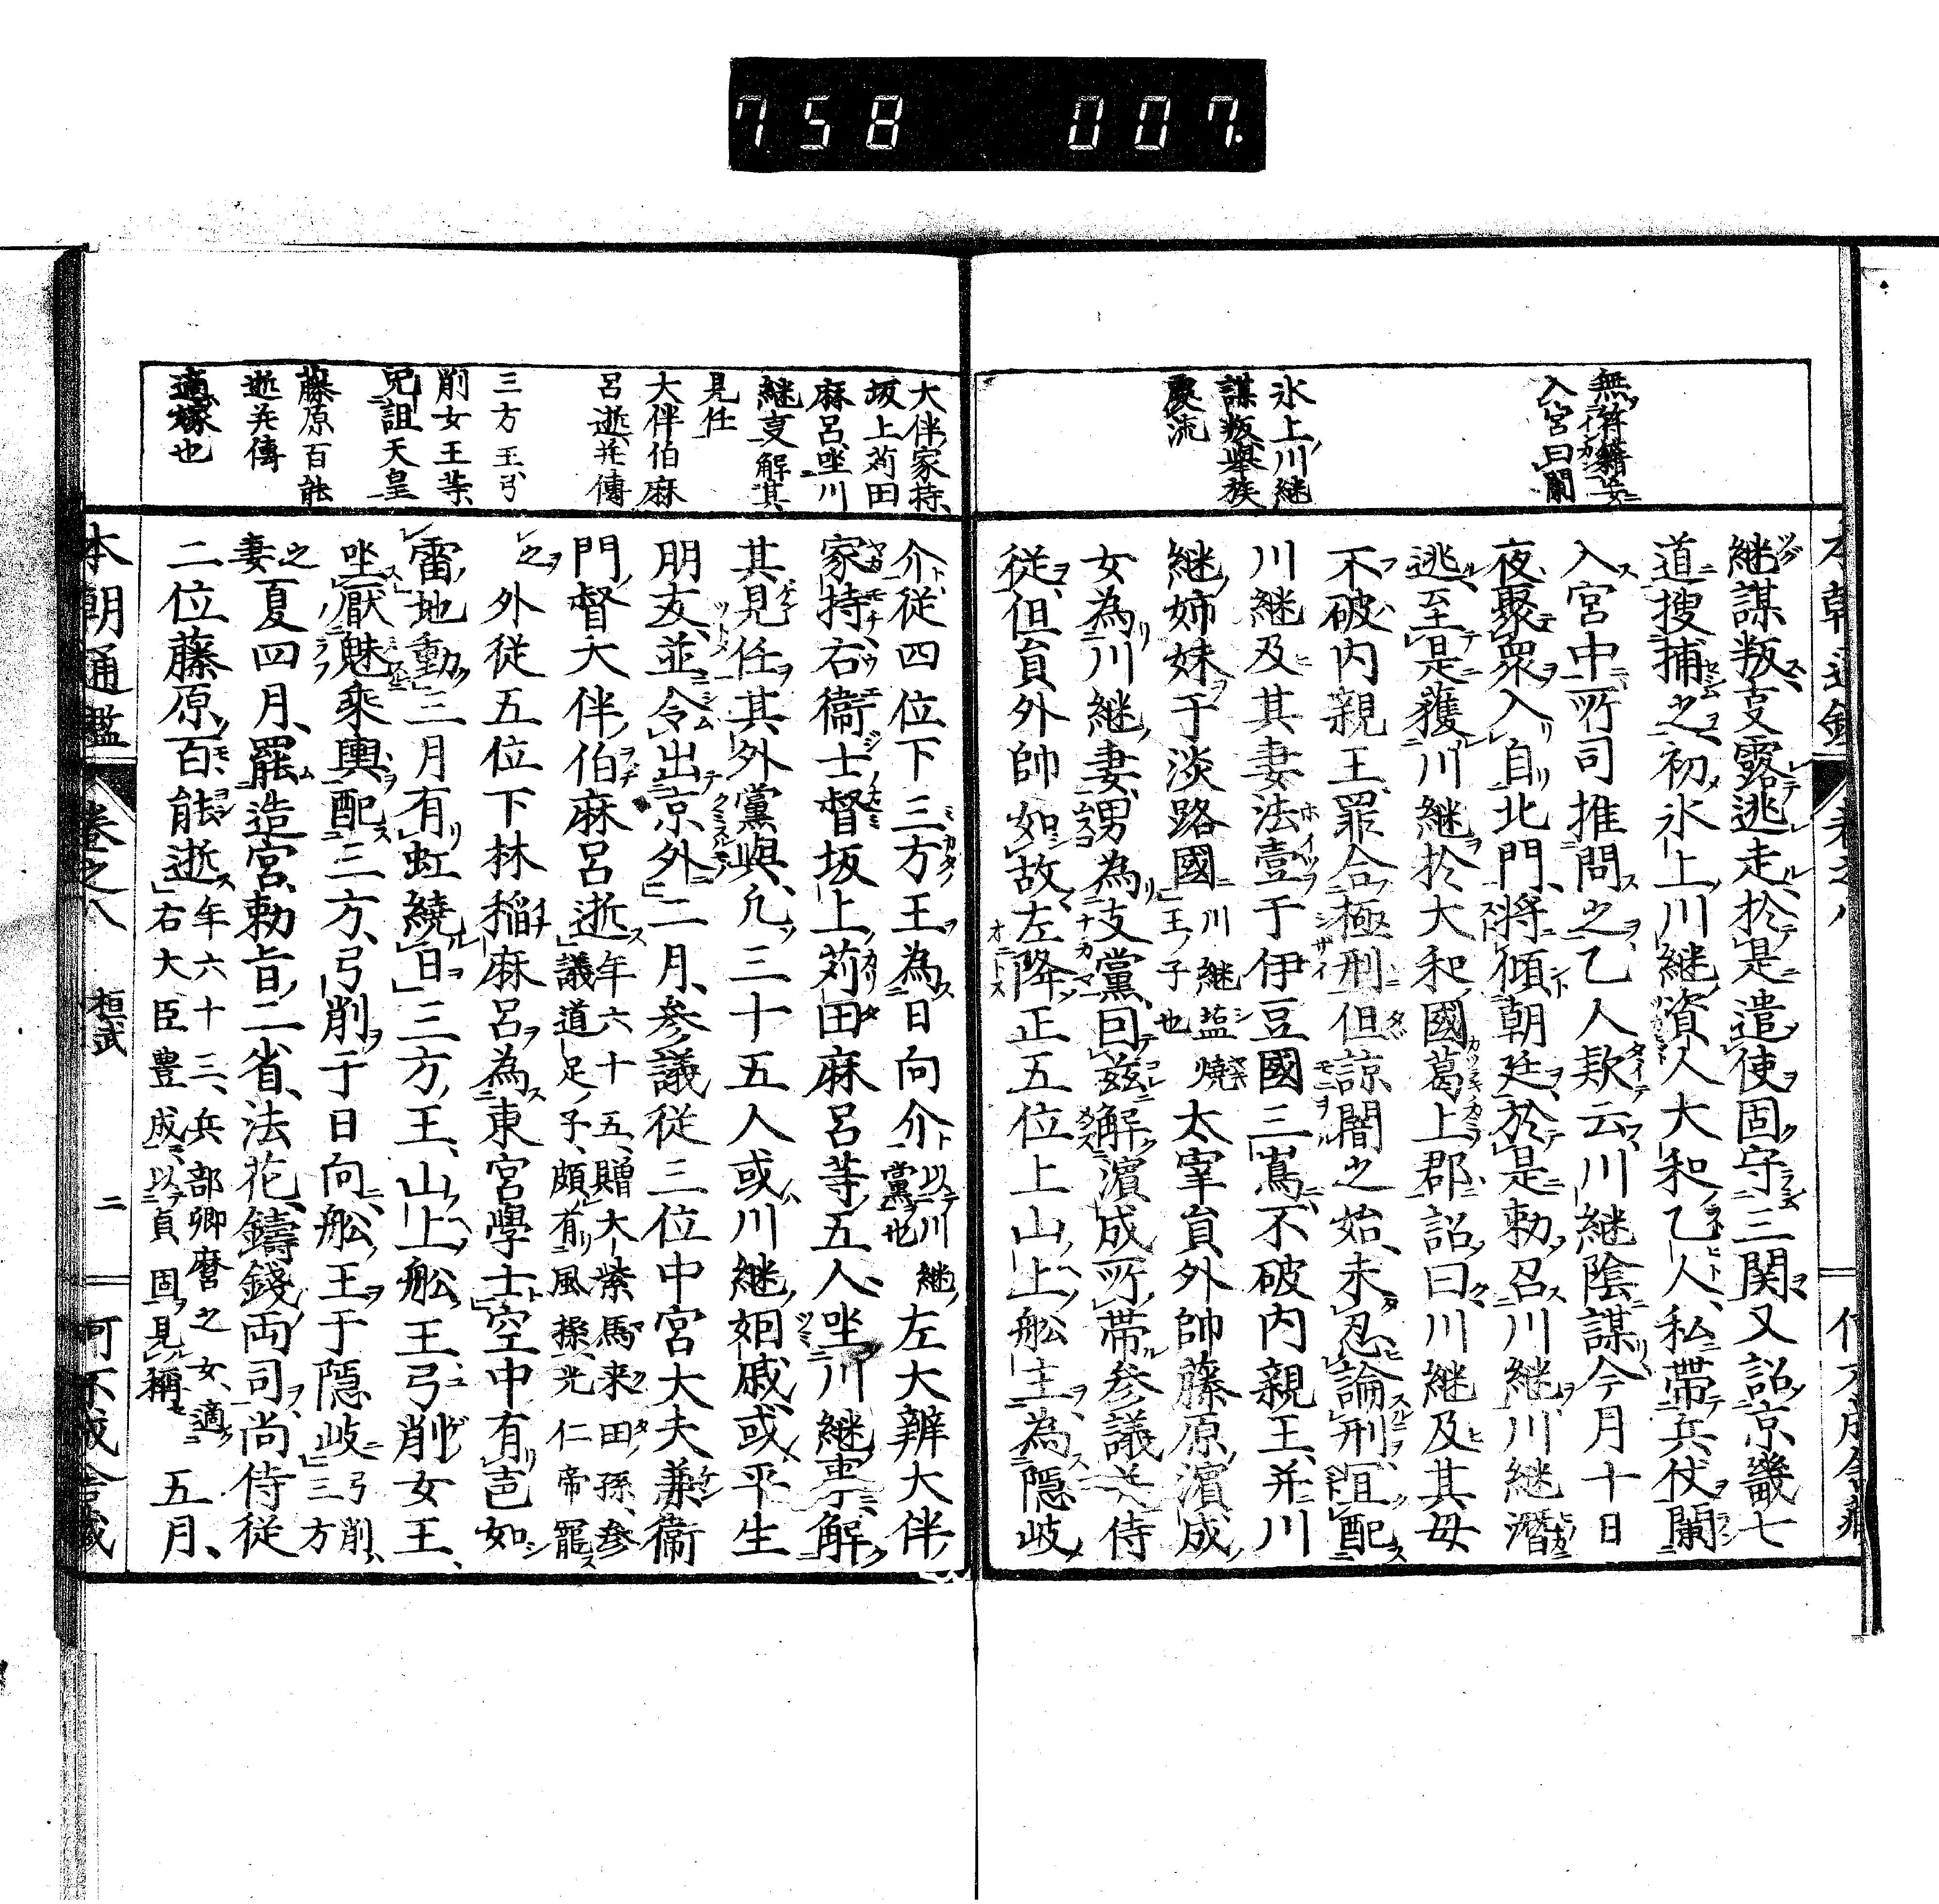 758 007.
無符籍妄
入宮曰闌
氷上川継
謀叛舉族
配流
継謀叛支露逃走於是遣使固守三関又詔京畿七
道捜捕之初氷上川継資人大和乙人私帯兵仗闌
入宮中所司推問之乙人欵云川継陰謀今月十日
夜聚衆入自北門将傾朝廷於是勅召川継川継潜
逃至是獲川継於大和國葛上郡詔曰川継及其母
不破内親王罪合極刑但諒闇之始未忍論刑且配
川継及其妻法壹于伊豆國三嶌不破内親王并川
継姉妹于淡路國川継塩焼王子也太宰員外帥藤原濵成
女為川継妻男為支黨曰兹解濵成所帯参議并侍
従但員外帥如故左降正五位上山上舩主為隠岐
大伴家持
坂上苅田
麻呂坐川
継支解其
見任
大伴伯麻
呂逝并傳
三方王弓
削女王等
咒詛天皇
藤原百能
逝并傳
適嫁也
介従四位下三方王為日向介以川継黨也左大辨大伴
家持右衞士督坂上苅田麻呂等五人坐川継事解
其見任其外黨與凡三十五人或川継姻戚或平生
朋友並令出京外二月参議従三位中宮大夫兼衞
門督大伴伯麻呂逝年六十五贈大紫馬来田孫参議道足子頗有風操光仁帝寵
之外従五位下林稲麻呂為東宮學士空中有声如
雷地動三月有虹繞日三方王山上舩王弓削女王
坐厭魅乘輿配三方弓削于日向舩王于隠岐弓削三方
之妻夏四月罷造宮勅旨二省法花鑄錢両司尚侍従
二位藤原百能逝年六十三兵部卿麿之女適右大臣豊成以貞固見稱五月
本朝通鑑 卷之八 桓武 二